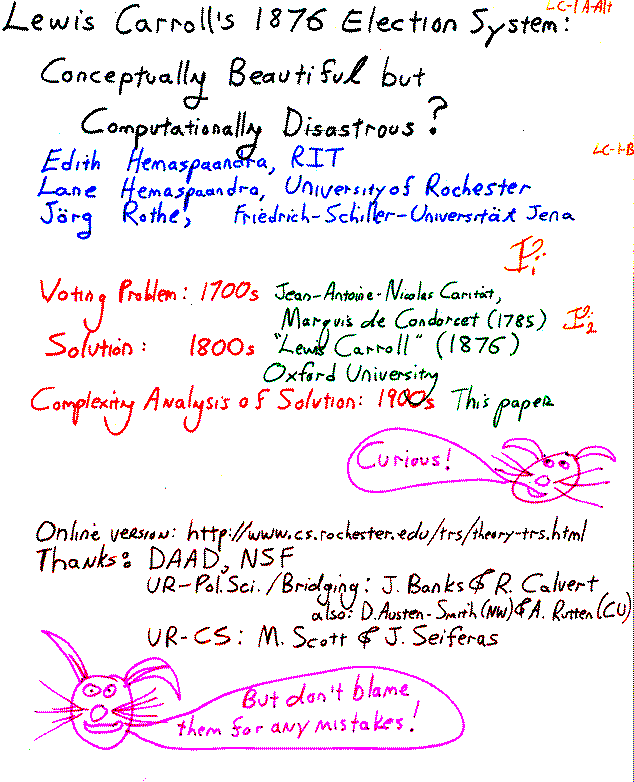 LC-1A-Alt
Lewis Carroll's 1876 Election System:
Conceptually Beautiful but
Computationally Disastrous?
LC-1-B
Edith Hemaspaandra, RIT
Lane Hemaspaandra, University of Rochester
Jörg Rothe, Friedrich-Schiller-Universität Jena
Voting Problem: 1700s Jean-Antoine-Nicolas Caritat,
Marquis de Condorcet (1785)
Solution: 1800s "Lewis Carroll" (1876)
Oxford University
Complexity Analysis of Solution: 1900s This paper
Curious!
Online version: http://www.cs.rochester.edu/trs/theory-trs.html
Thanks: DAAD, NSF
UR-Pol.Sci./Bridging: J. Banks & R. Calvert
also: D. Austen-Smith (NW) & A. Rutten (CU)
UR-CS: M. Scott & J. Seiferas
But don't blame
them for any mistakes!